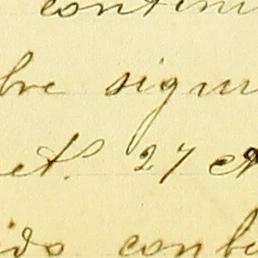 contin
bre sign
et. 27 e
ido conbe